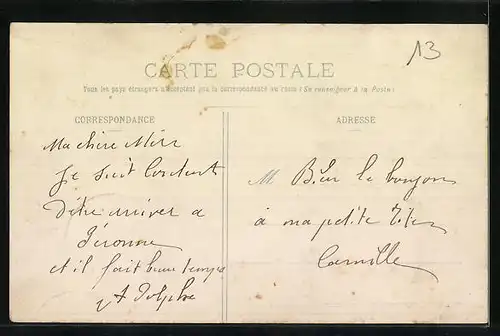 13
CARTE POSTALE
Tous les pays étrangers n'acceptent pas la correspondance au recto (Se renseigner à la Poste)
CORRESPONDANCE
ADRESSE
Ma chère Mère
je suit contente
d'être arriver a
Péronne
et il fait beau temps
M
à ma petite
Camille